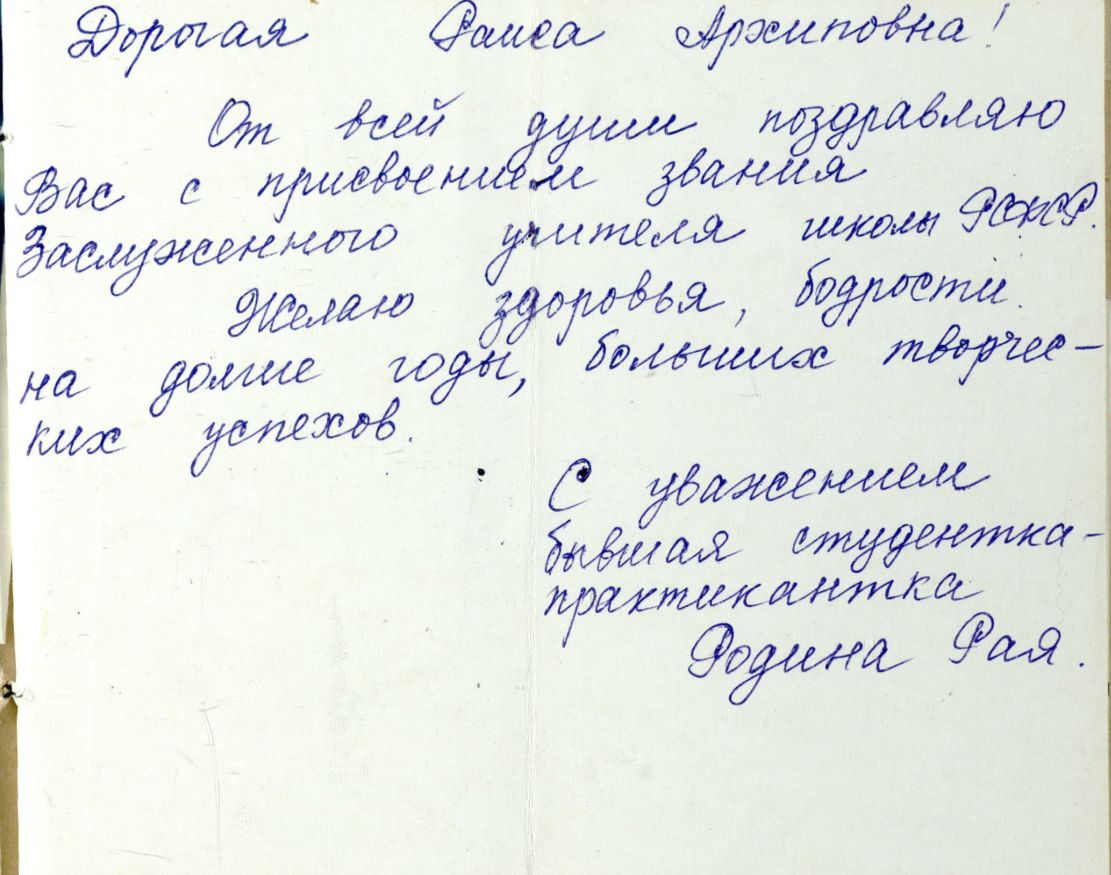 Дорогая Раиса Архиповна!
От всей души поздравляю
Вас с присвоением звания
Заслуженного учителя школы РСФСР.
Желаю здоровья, бодрости
на долгие годы, больших творчес-
ких успехов.
С уважением
бывшая студентка-
практикантка
Родина Рая.